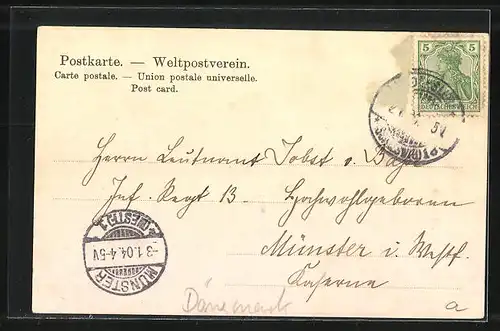 Postkarte. — Weltpostverein.
Carte postale. — Union postale universelle.
Post card.
5 5
DEUTSCHES REICH
5V
Herrn Leutnant Jobst v.
Inf. Regt 13. Hochwohlgeboren
Münster i. Westf.
Kaserne
MÜNSTER
-3.1.04.4-5V
(WESTF.) 1
Dänemark
a